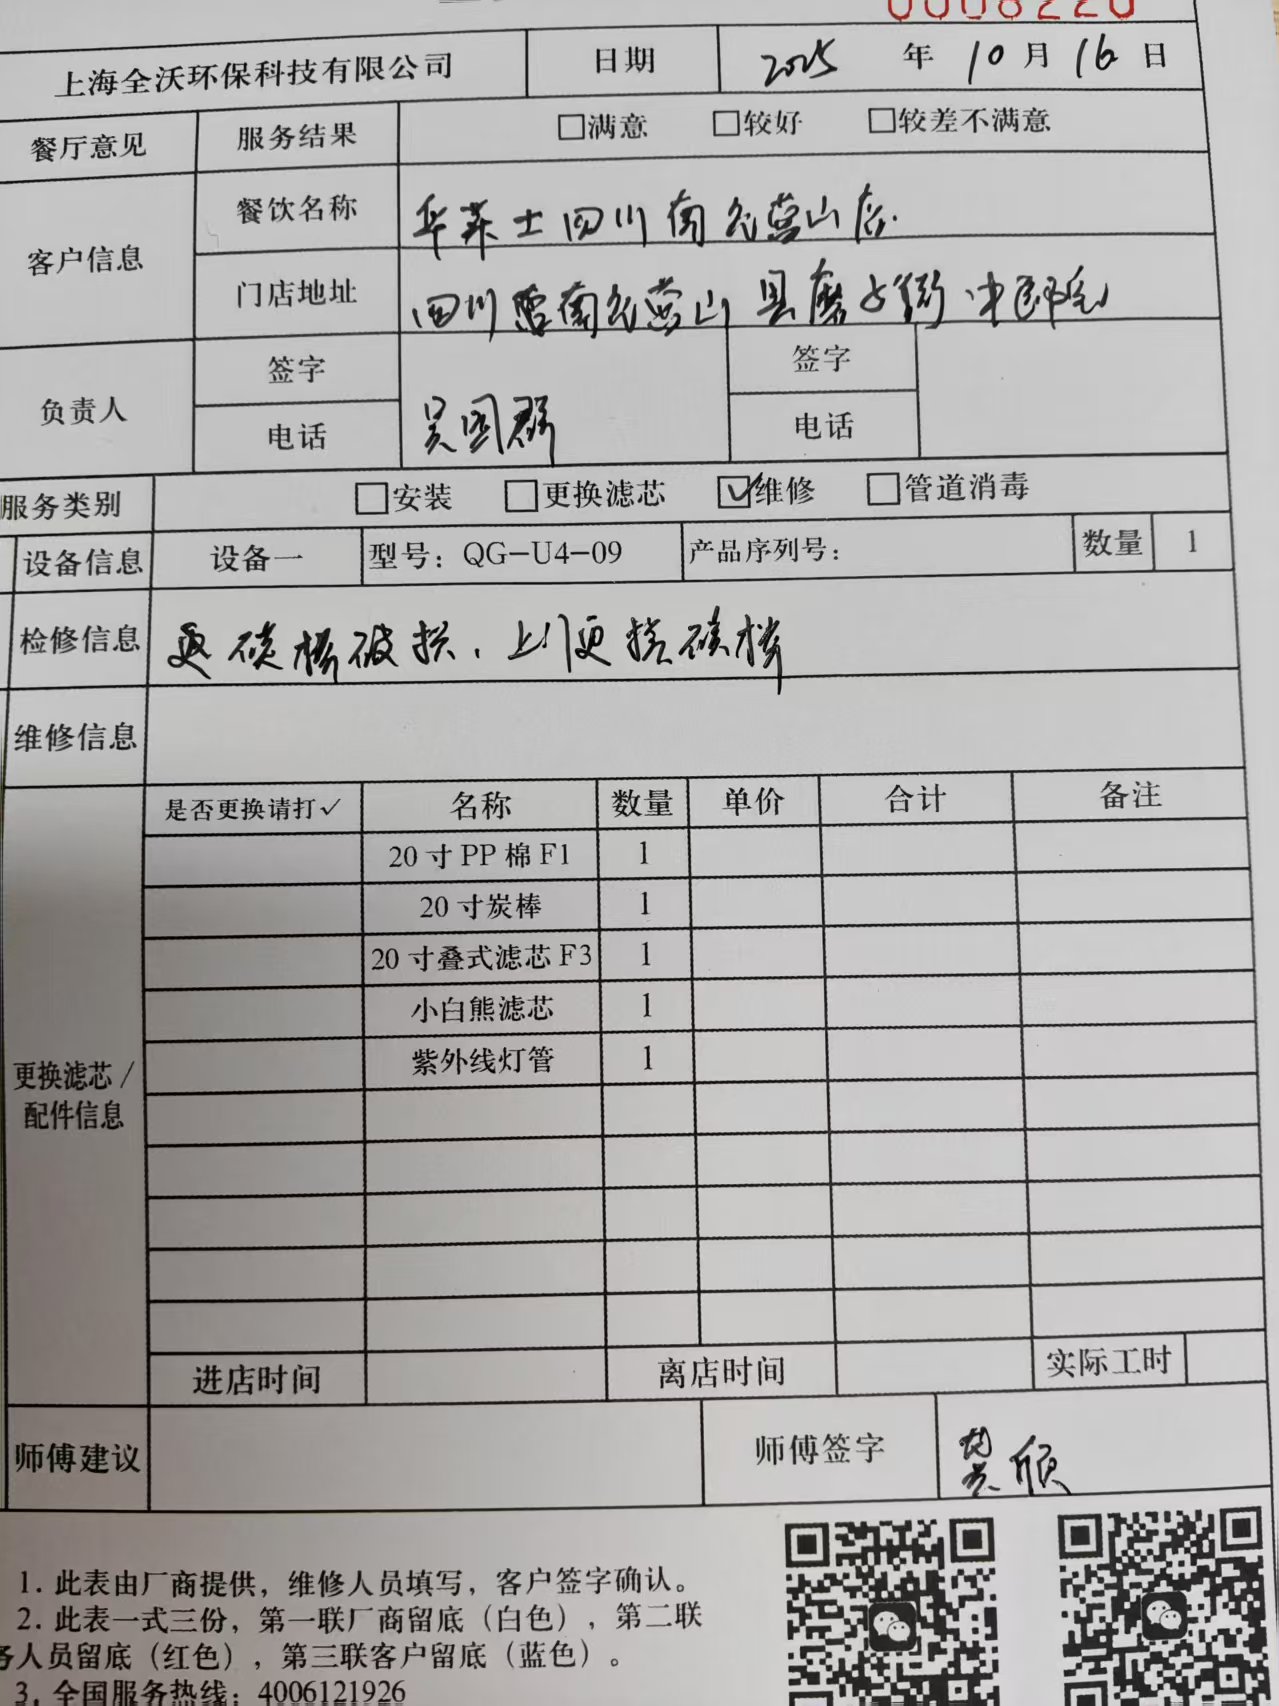 0008220
上海全沃环保科技有限公司 日期 2025 年 10 月 16 日
餐厅意见 服务结果 □满意 □较好 □较差不满意
客户信息 餐饮名称 华莱士四川南充营山店
门店地址 四川 南充营山县磨子街中
负责人 签字 签字
电话 吴国群 电话
服务类别 □安装 □更换滤芯 ☑维修 □管道消毒
设备信息 设备一 型号：QG-U4-09 产品序列号： 数量 1
检修信息 碳棒破损、上门更换碳棒
维修信息
是否更换请打✓ 名称 数量 单价 合计 备注
20寸PP棉F1 1
20寸炭棒 1
20寸叠式滤芯F3 1
小白熊滤芯 1
紫外线灯管 1
更换滤芯/
配件信息
进店时间 离店时间 实际工时
师傅建议 师傅签字
1. 此表由厂商提供，维修人员填写，客户签字确认。
2. 此表一式三份，第一联厂商留底（白色），第二联
务人员留底（红色），第三联客户留底（蓝色）。
3. 全国服务热线：4006121926